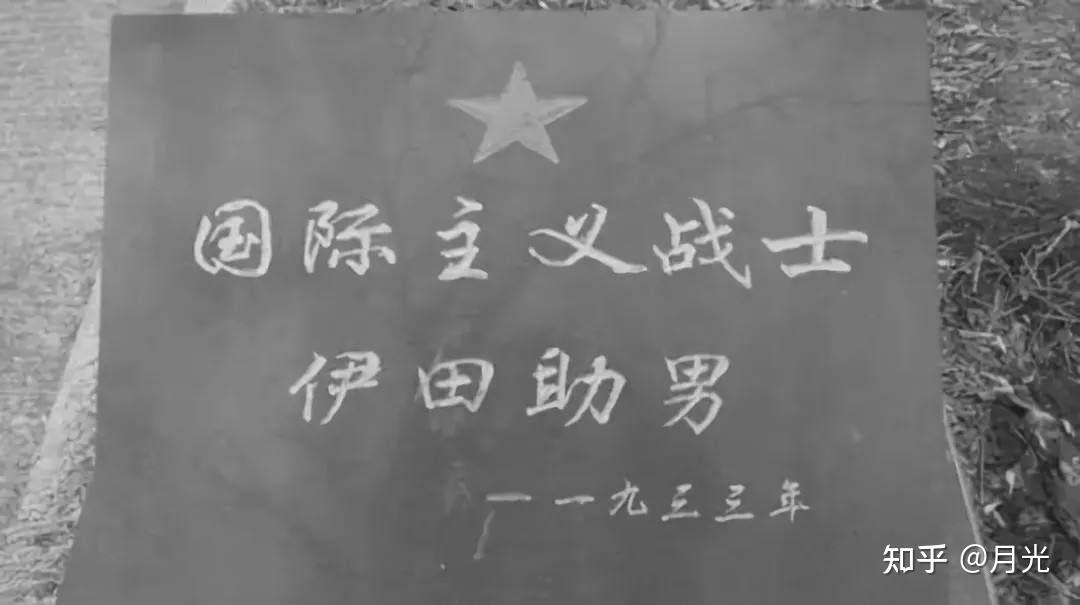 国际主义战士
伊田助男
一一九三三年
知乎 @月光